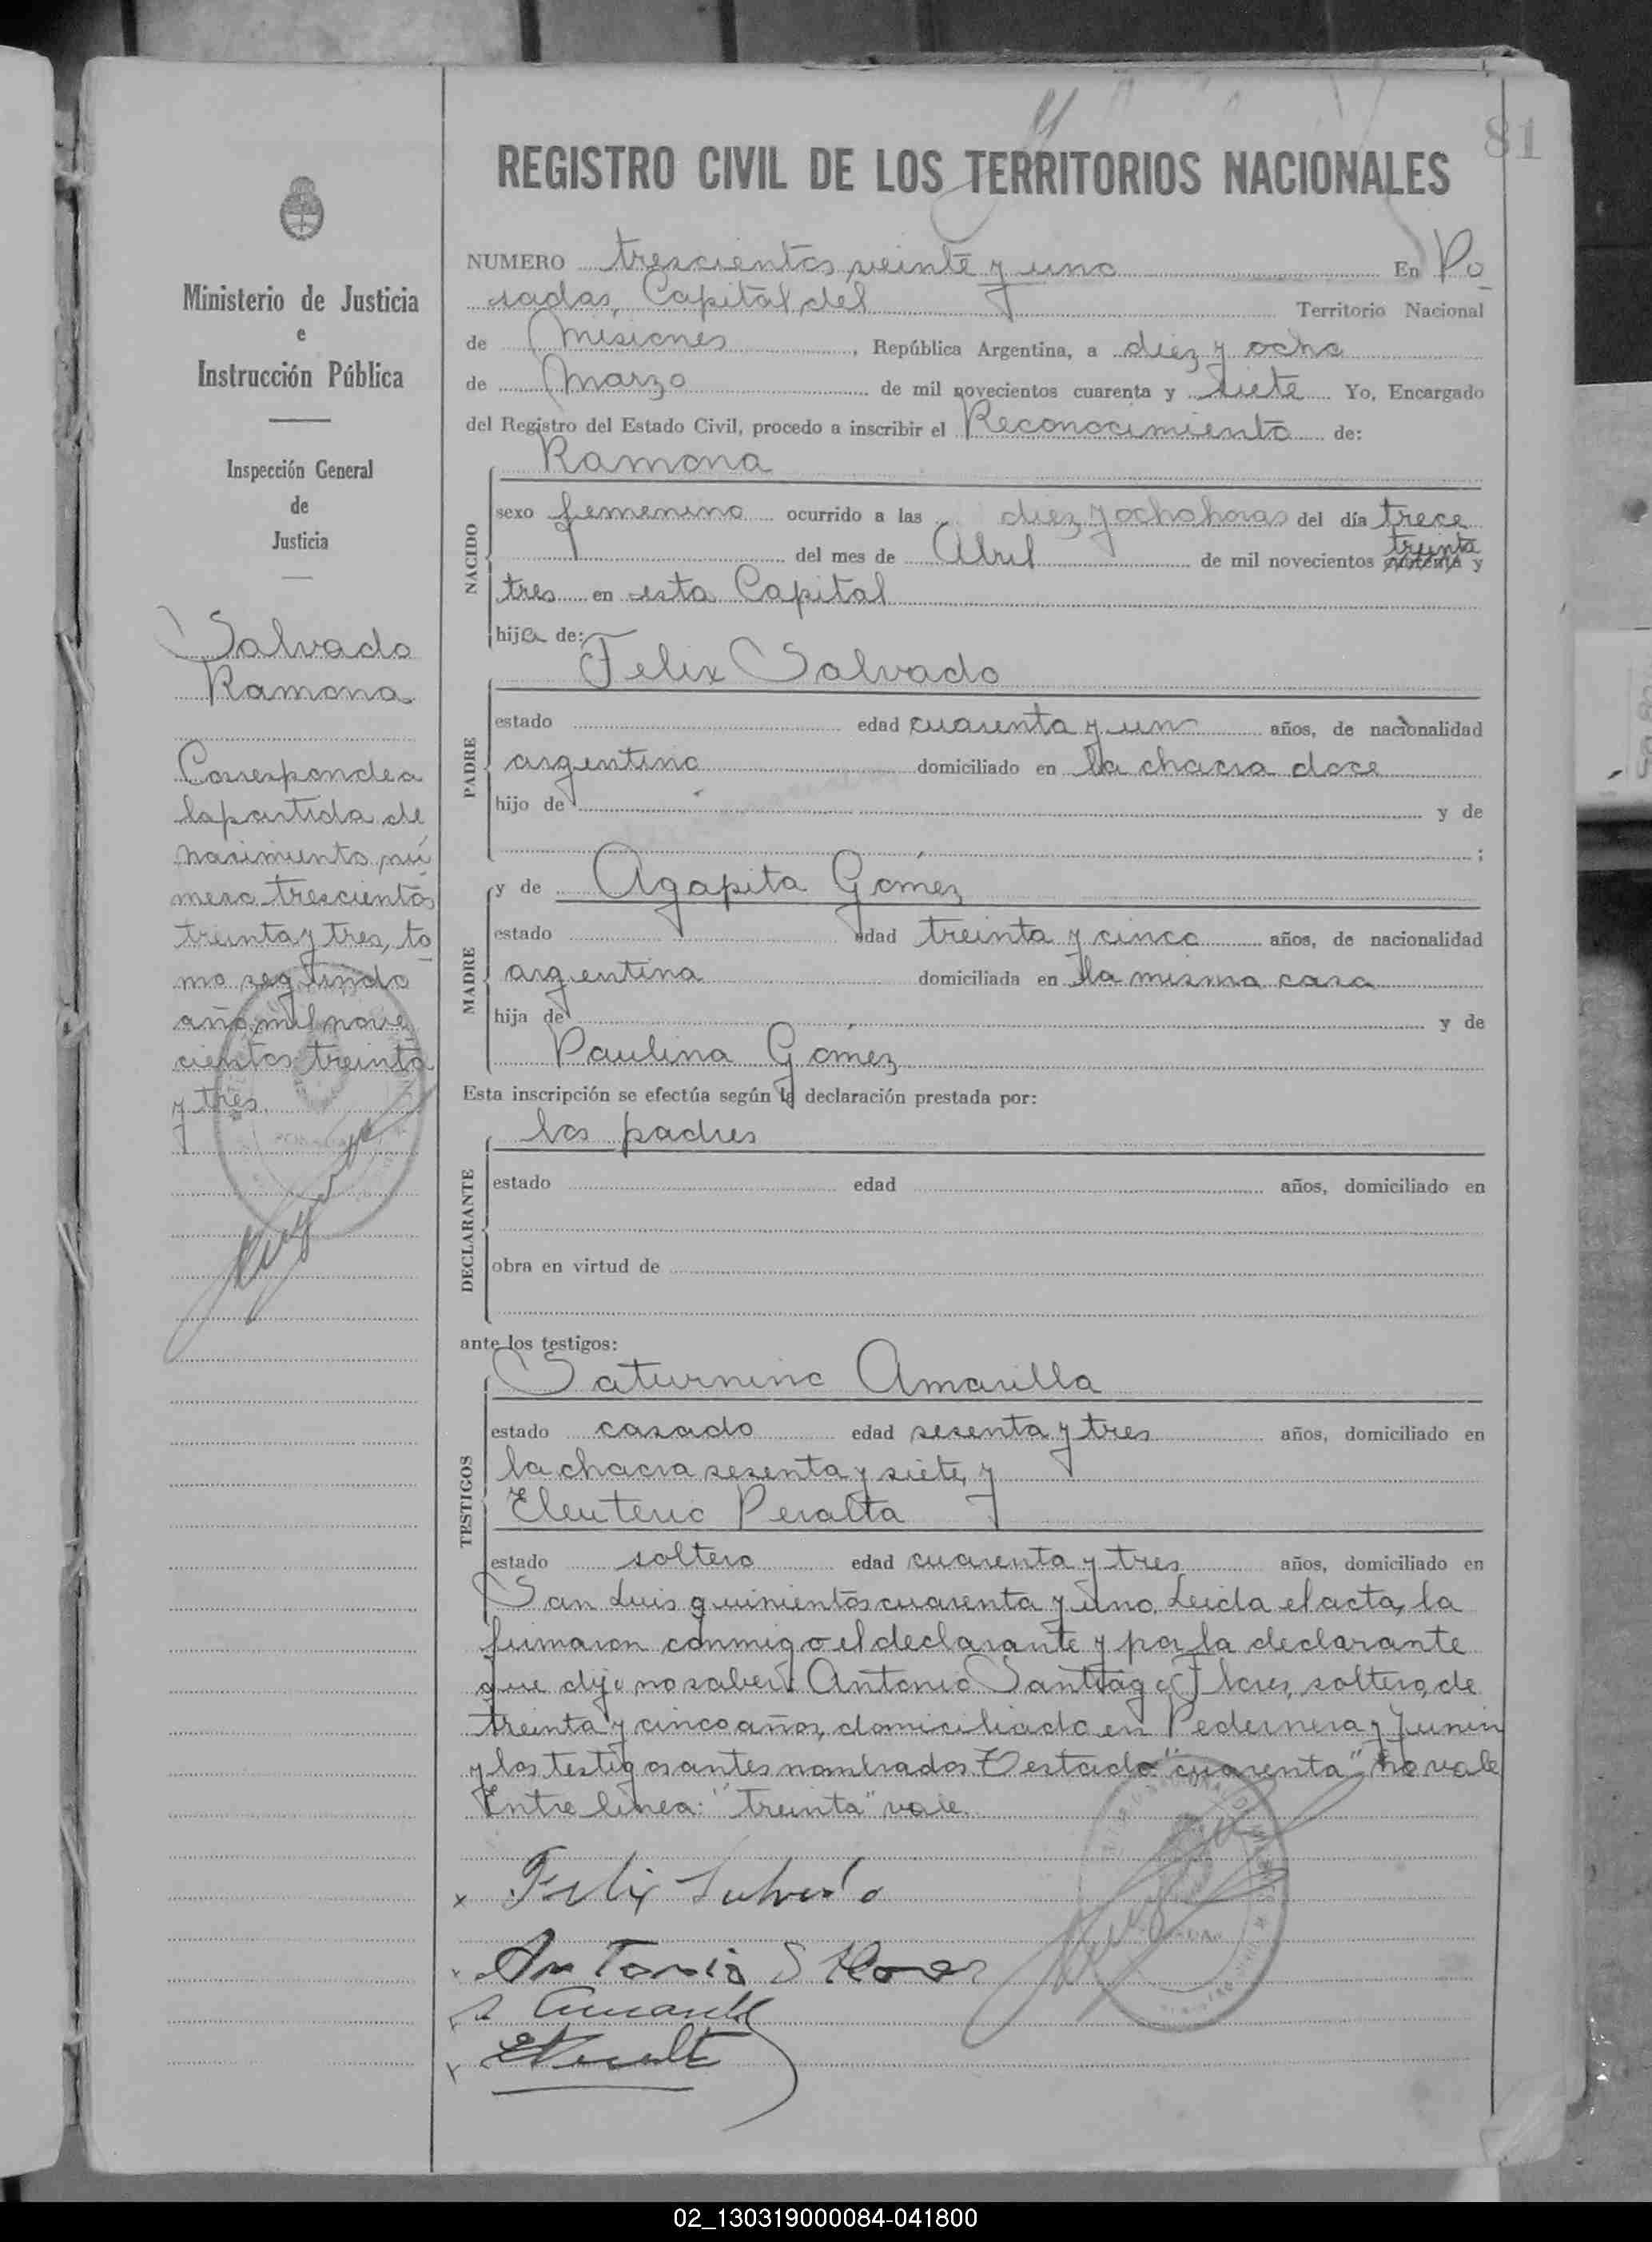 81
REGISTRO CIVIL DE LOS TERRITORIOS NACIONALES
Ministerio de Justicia
e
Instrucción Pública
Inspección General
de
Justicia
Salvado
Ramona
Corresponde a
la partida de
nacimiento nú
mero trescientos
treinta y tres, to
mo segundo
año mil nove
cientos treinta
y tres.
NUMERO trescientos veinte y uno En Po
sadas, Capital del Territorio Nacional
de Misiones, República Argentina, a diez y ocho
de Marzo de mil novecientos cuarenta y siete Yo, Encargado
del Registro del Estado Civil, procedo a inscribir el Reconocimiento de:
Ramona
NACIDO
sexo femenino ocurrido a las diez y ocho horas del día trece
treinta
del mes de Abril de mil novecientos cuarenta y
tres en esta Capital
hija de:
Felix Salvado
PADRE
estado edad cuarenta y un años, de nacionalidad
argentino domiciliado en la chacra doce
hijo de y de
;
y de Agapita Gómez
MADRE
estado edad treinta y cinco años, de nacionalidad
argentina domiciliada en la misma casa
hija de y de
Paulina Gómez
Esta inscripción se efectúa según la declaración prestada por:
los padres
DECLARANTE
estado edad años, domiciliado en
obra en virtud de
ante los testigos:
Saturnino Amarilla
TESTIGOS
estado casado edad sesenta y tres años, domiciliado en
la chacra sesenta y siete, y
Eleuterio Peralta
estado soltero edad cuarenta y tres años, domiciliado en
San Luis quinientos cuarenta y uno. Leida el acta, la
firmaron conmigo el declarante y por la declarante
que dijo no saber Antonio Santiago Flores, soltero, de
treinta y cinco años, domiciliado en Pedernera y Junin
y los testigos antes nombrados Testado "cuarenta" no vale
Entre linea: "treinta" vale.
Felix Salvado
Antonio S Flores
S Amarilla
E Peralta
02_130319000084-041800